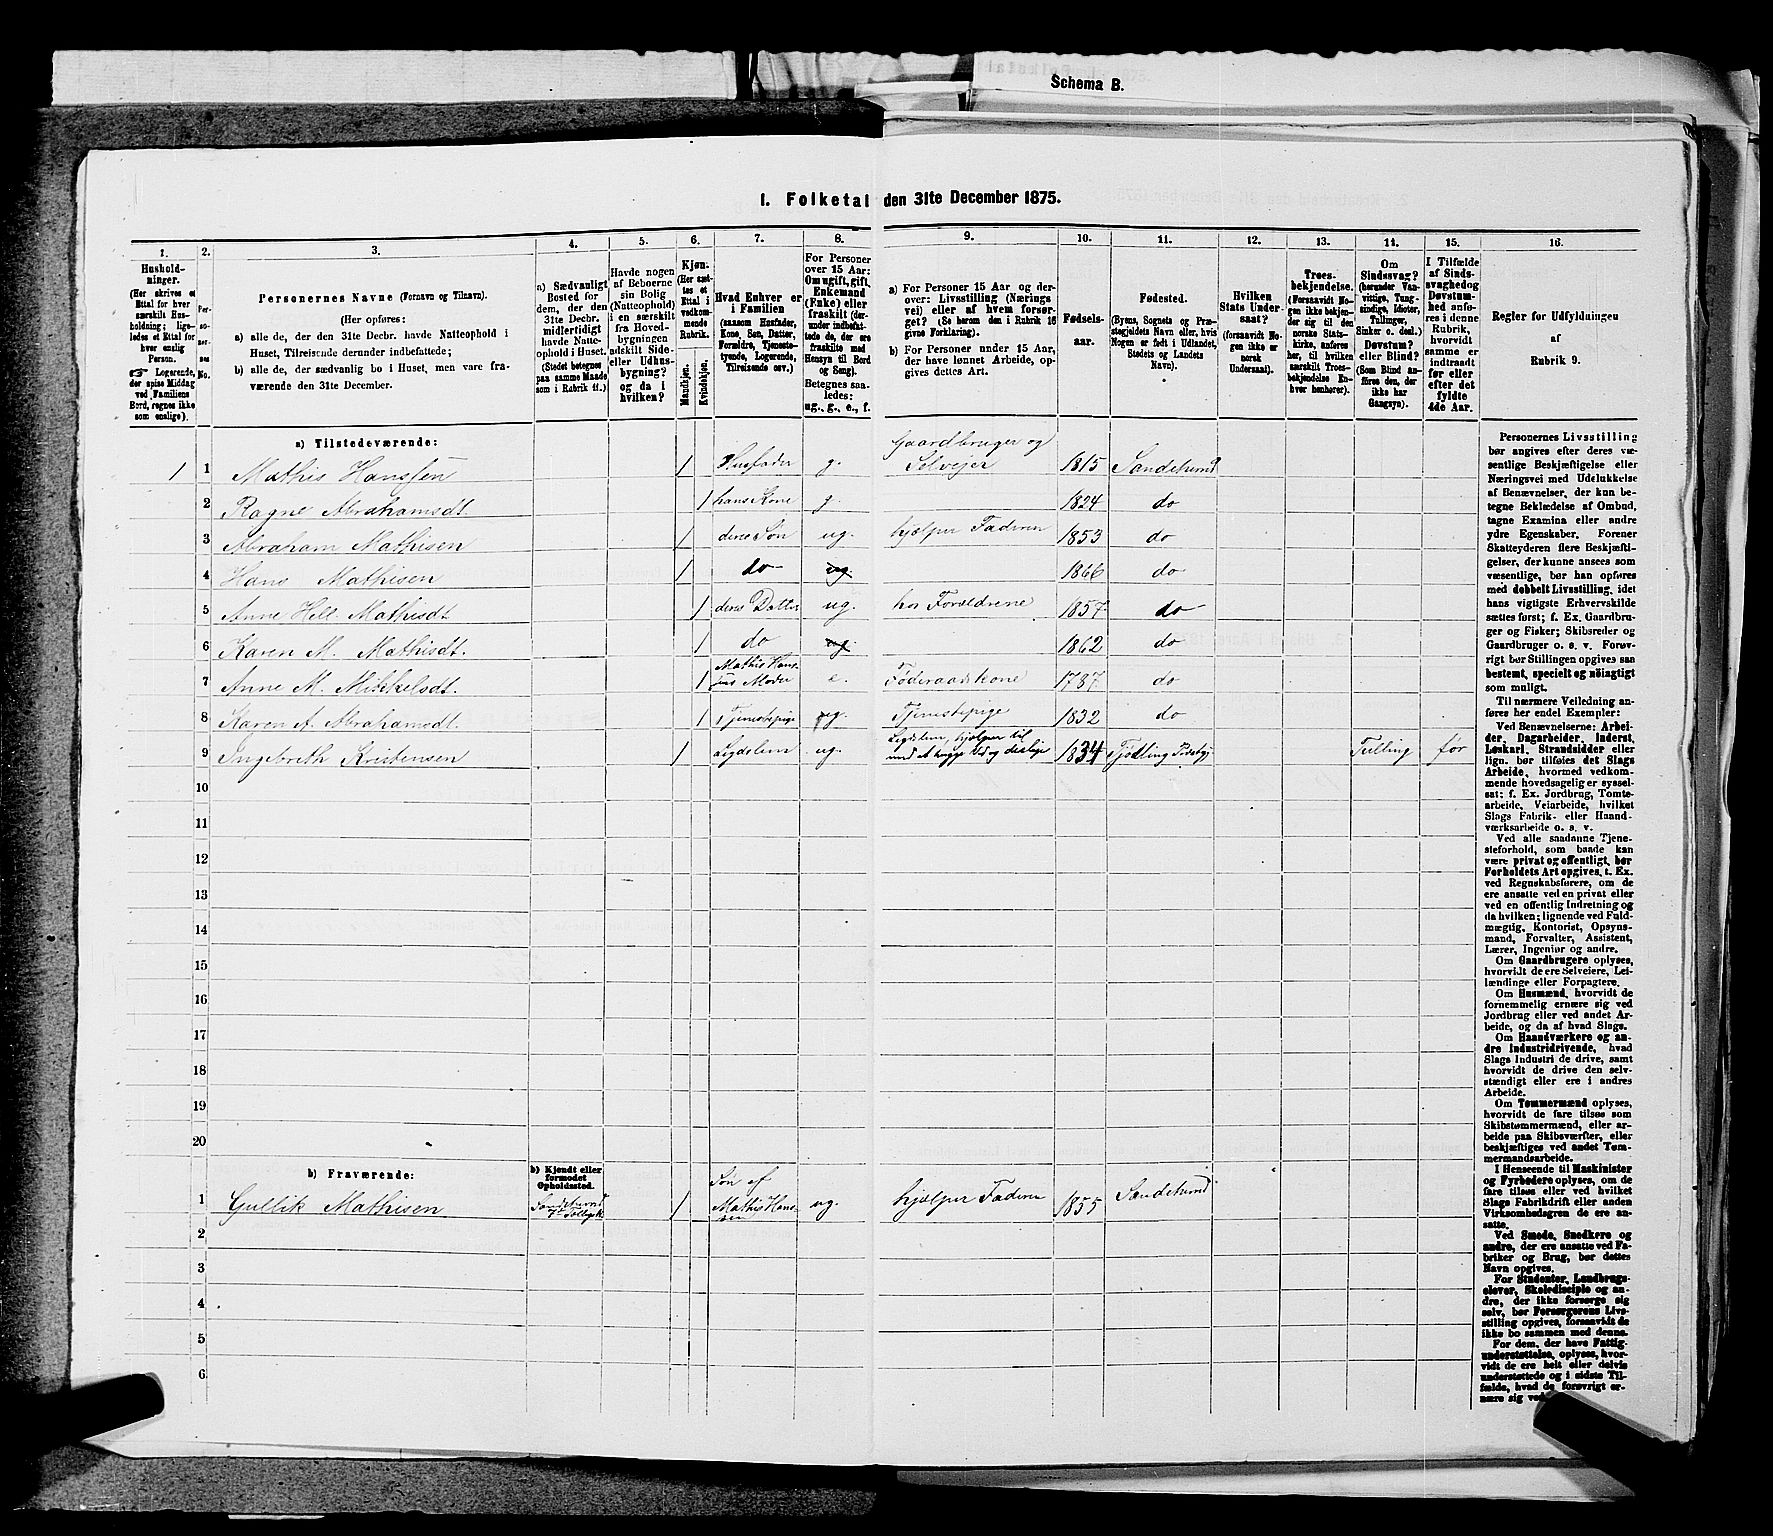 Schema B.
1. Folketal den 31te December 1875.
1.
Hushold-
ninger.
(Her skrives et
Ettal for hver
særskilt Hus-
holdning; lige-
ledes et Ettal for
hver enslig
Person.
☞ Logerende,
der spise Middag
ved Familiens
Bord, regnes ikke
som enslige).
2.
Per-
so-
ner-
nes
No.
3.
Personernes Navne (Fornavn og Tilnavn).
(Her opføres:
a) alle de, der den 31te Decbr. havde Natteophold i
Huset, Tilreisende derunder indbefattede;
b) alle de, der sædvanlig bo i Huset, men vare fra-
værende den 31te December.
4.
a) Sædvanligt
Bosted for
dem, der den
31te Decbr.
midlertidigt
havde Natte-
ophold i Huset.
(Stedet betegnes
paa samme Maade
som i Rubrik 11.)
5.
Havde nogen
af Beboerne
sin Bolig
(Natteophold)
i en særskilt
fra Hoved-
bygningen
adskilt Side-
eller Udhus-
bygning?
og da i
hvilken?
6.
Kjøn.
(Her sæt-
tes et
Ettal i
vedkom-
mende
Rubrik.
Mandkjøn.
Kvindekjøn.
7.
Hvad Enhver er
i Familien
(saasom Husfader,
Kone, Søn, Datter,
Forældre, Tjeneste-
tyende, Logerende,
Tilreisende osv.)
8.
For Personer
over 15 Aar:
Om ugift, gift,
Enkemand
(Enke) eller
fraskilt (der-
under indbefat-
tede de, der ere
fraskilte med
Hensyn til Bord
og Seng).
Betegnes saa-
ledes:
ug., g., e., f.
9.
a) For Personer 15 Aar og der-
over: Livsstilling (Nærings
vei) eller af hvem forsør-
get? (Se herom den i Rubrik 16
givne Forklaring).
b) For Personer under 15 Aar,
der have lønnet Arbeide, op-
gives dettes Art.
10.
Fødsels-
aar.
11.
Fødested.
(Byens, Sognets og Præ-
stegjeldets Navn eller, hvis
Nogen er født i Udlandet,
Stedets og Landets
Navn).
12.
Hvilken
Stats Under-
saat?
(forsaavidt No-
gen ikke er
norsk
Undersaat).
13.
Troes-
bekjendelse.
(Forsaavidt No-
gen ikke bekjen-
der sig til den
norske Stats-
kirke, anføres
her, til hvilken
særskilt Troes-
bekjendelse En-
hver henhører).
14.
Om
Sindssvag?
(herunder Van-
vittige, Tung-
sindige, Idioter,
Tullinger,
Sinker o. desl.)
Døvstum?
eller Blind?
(Som Blind an-
føres den, der
ikke har
Gangsyn).
15.
I Tilfælde
af Sinds-
svaghed og
Døvstum-
hed anfø-
res i denne
Rubrik,
hvorvidt
samme er
indtraadt
før eller
efter det
fyldte
4de Aar.
16.
Regler for Udfyldningen
af
Rubrik 9.
a) Tilstedeværende:
1 1 Mathis Hanssen 1 Husfader g. Gaardbruger og Selvejer 1815 Sandehered
2 Ragne Abrahamsdt. 1 hans Kone g. 1824 do
3 Abraham Mathisen 1 deres Søn ug. hjælper Faderen 1853 do
4 Hans Mathisen 1 do ug. 1866 do
5 Anne Hell. Mathisdt 1 deres Datter ug. hos Forældrene 1857 do
6 Karen M. Mathisdt. 1 do ug. 1862 do
7 Anne M. Mikkelsdt. 1 Mathis Hans- sens Moder e. Føderaadskone 1787 do
8 Karen A. Abrahamsdt. 1 Tjenestepige ug. Tjenestepige 1832 do
9 Ingebreth Kristensen 1 Lægdslem ug. Lægdslem, hjælper til med at hugge Ved og deslige 1834 Tjødling Tulling før
10
11
12
13
14
15
16
17
18
19
20
b) Fraværende:
b) Kjendt eller
formodet
Opholdssted.
1 Gullik Mathisen Sandehered 1 Søn af Mathis Hans- sen ug. hjælper Faderen 1855 Sandehered
2
3
4
5
6
Personernes Livsstilling
bør angives efter deres væ-
sentlige Beskjæftigelse eller
Næringsvei med Udelukkelse
af Benævnelser, der kun be-
tegne Beklædelse af Ombud,
tagne Examina eller andre
ydre Egenskaber. Forener
Skatteyderen flere Beskjæfti-
gelser, der kunne ansees som
væsentlige, bør han opføres
med dobbelt Livsstilling, idet
hans vigtigste Erhvervskilde
sættes først; f. Ex. Gaardbru-
ger og Fisker; Skibsreder og
Gaardbruger o. s. v. Forøv-
rigt bør Stillingen opgives saa
bestemt, specielt og nøiagtigt
som muligt.
Til nærmere Veiledning an-
føres her endel Exempler:
Ved Benævnelserne: Arbei-
der, Dagarbeider, Inderst,
Løskarl, Strandsidder eller
lign. bør tilføies det Slags
Arbeide, hvormed vedkom-
mende hovedsagelig er syssel-
sat; f. Ex. Jordbrug, Tomte-
arbeide, Veiarbeide, hvilket
Slags Fabrik- eller Haand-
værksarbeide o. s. v.
Ved alle saadanne Tjene-
steforhold, som baade kan
være privat og offentligt, bør
Forholdets Art opgives, t. Ex.
ved Regnskabsførere, om de
ere ansatte ved en privat eller
ved en offentlig Indretning og
da hvilken; lignende ved Fuld-
mægtig, Kontorist, Opsyns-
mand, Forvalter, Assistent,
Lærer, Ingeniør og andre.
Om Gaardbrugere oplyses,
hvorvidt de ere Selveiere, Lei-
lændinge eller Forpagtere.
Om Husmænd, hvorvidt de
fornemmelig ernære sig ved
Jordbrug eller ved andet Ar-
beide, og da af hvad Slags.
Om Haandværkere og an-
dre Industridrivende, hvad
Slags Industri de drive, samt
hvorvidt de drive den selv-
stændigt eller ere i andres
Arbeide.
Om Tømmermænd oplyses,
hvorvidt de fare tilsøs som
Skibstømmermænd, eller ar-
beide paa Skibsværfter, eller
beskjæftiges ved andet Tøm-
mermandsarbeide.
I Henseende til Maskinister
og Fyrbødere oplyses, om de
fare tilsøs eller ved hvilket
Slags Fabrikdrift eller anden
Virksomhedsgren de ere an-
satte.
Ved Smede, Snedkere og
andre, der ere ansatte ved Fa-
briker og Brug, bør dettes
Navn opgives.
For Studenter, Landbrugs-
elever, Skoledisciple og an-
dre, der ikke forsørge sig
selv, bør Forsørgerens Livs-
stilling opgives, forsaavidt de
ikke bo sammen med denne.
For dem, der have Fattig-
understøttelse, oplyses, hvor-
vidt de ere helt eller delvis
understøttede og i sidste Til-
fælde, hvad de forøvrigt er-
nære sig ved.